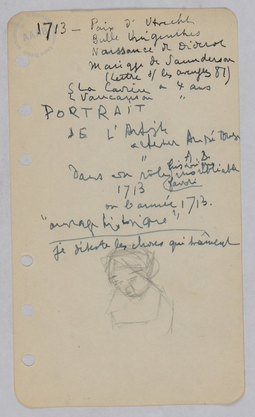 1713 — Paix d'Utrecht
Bulle Unigenitus
Naissance de Diderot
Mariage de Saunderson
(lettre s/ les aveugles 81)
La Caille a 4 ans
Vaucanson "
PORTRAIT
DE L'Artiste
Dans son rôle
1713
ou l'année 1713.
"ouvrage historique"
je déteste les choses qui traînent